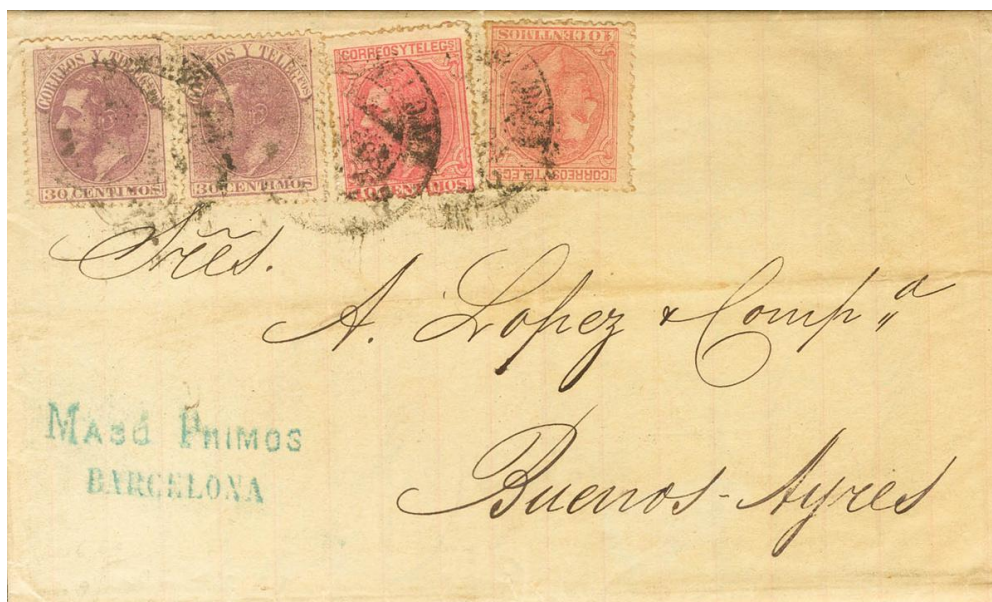 CORREOS Y TELEGFOS
30 CENTIMOS
30 CENTIMOS
CORREOS Y TELEGS
10 CENTIMOS
CORREOS Y TELEGS
10 CENTIMOS
Sres.
A. Lopez & Comp.a
Buenos-Ayres
MASÓ PRIMOS
BARCELONA